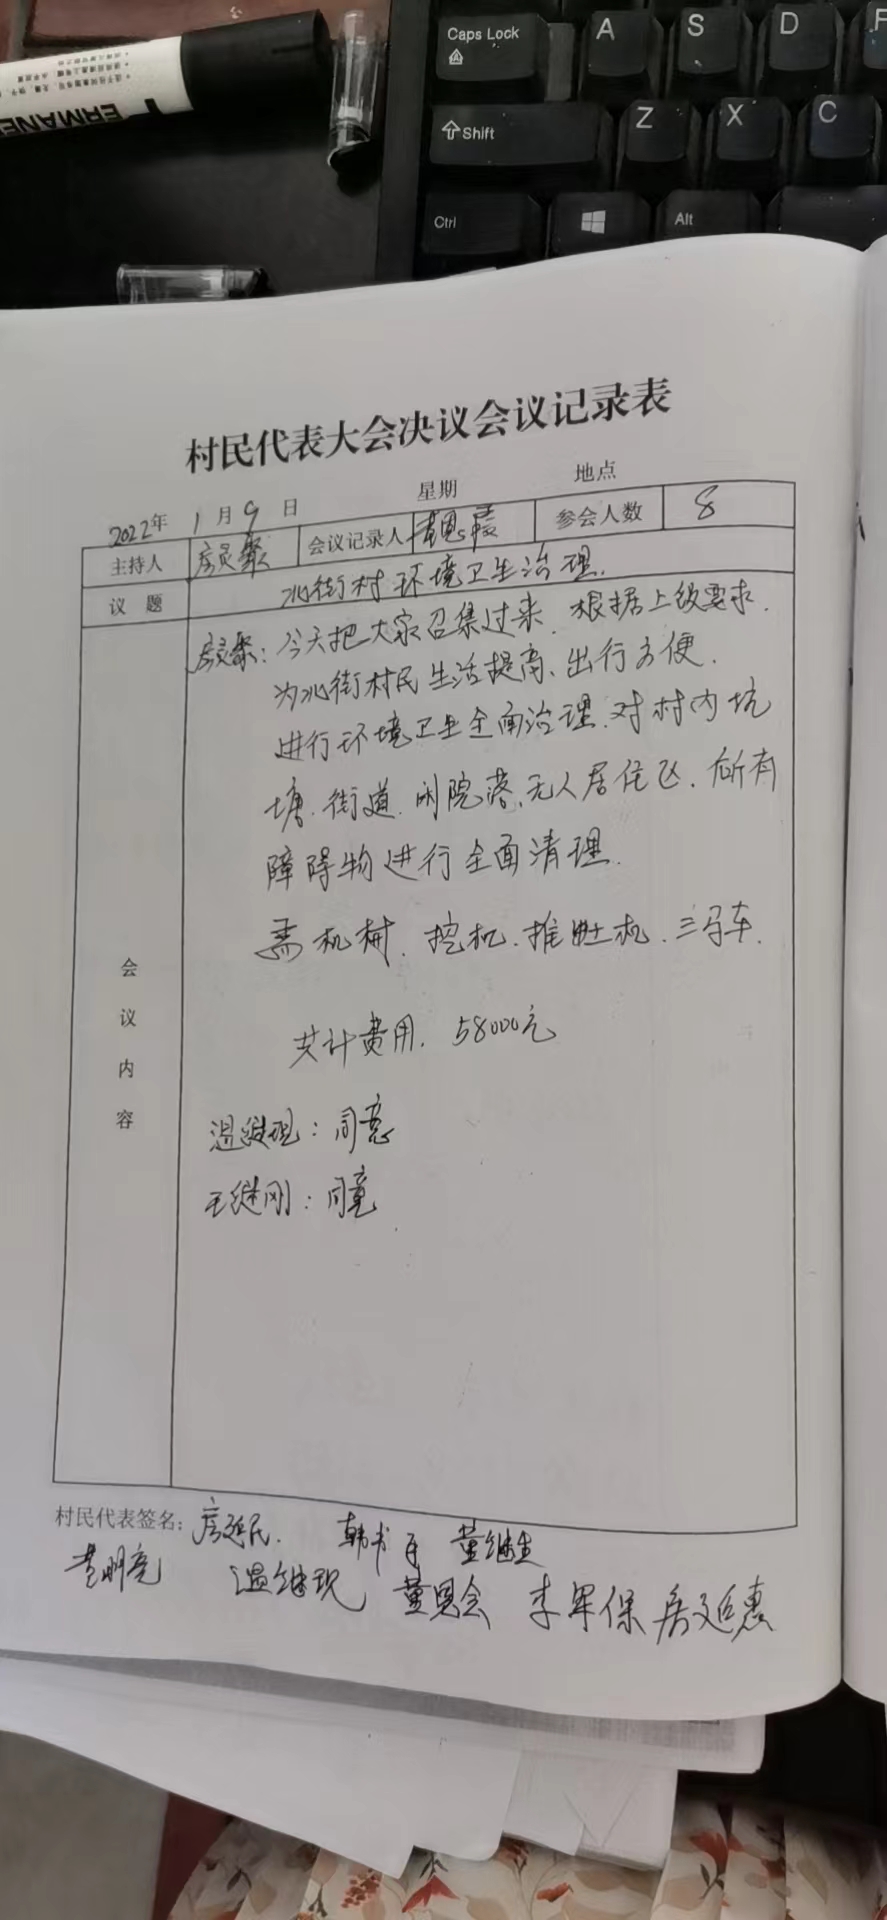 Caps Lock A S D F
Shift Z X C
Ctrl Alt
村民代表大会决议会议记录表
2022年 1月9日 星期 地点
主持人 房延聚 会议记录人 参会人数 8
议题 北街村环境卫生治理.
会议内容
房延聚: 今天把大家召集过来. 根据上级要求.
为北街村民生活提高、出行方便.
进行环境卫生全面治理. 对村内坑
塘. 街道. 闲院落、无人居住区. 所有
障碍物进行全面清理.
需机械. 挖机. 推土机. 三马车.
共计费用. 58000元
温继现: 同意
王继刚: 同意
村民代表签名: 房延民. 韩书 董继生
黄明亮 温继现 董恩会 李军保 房延惠